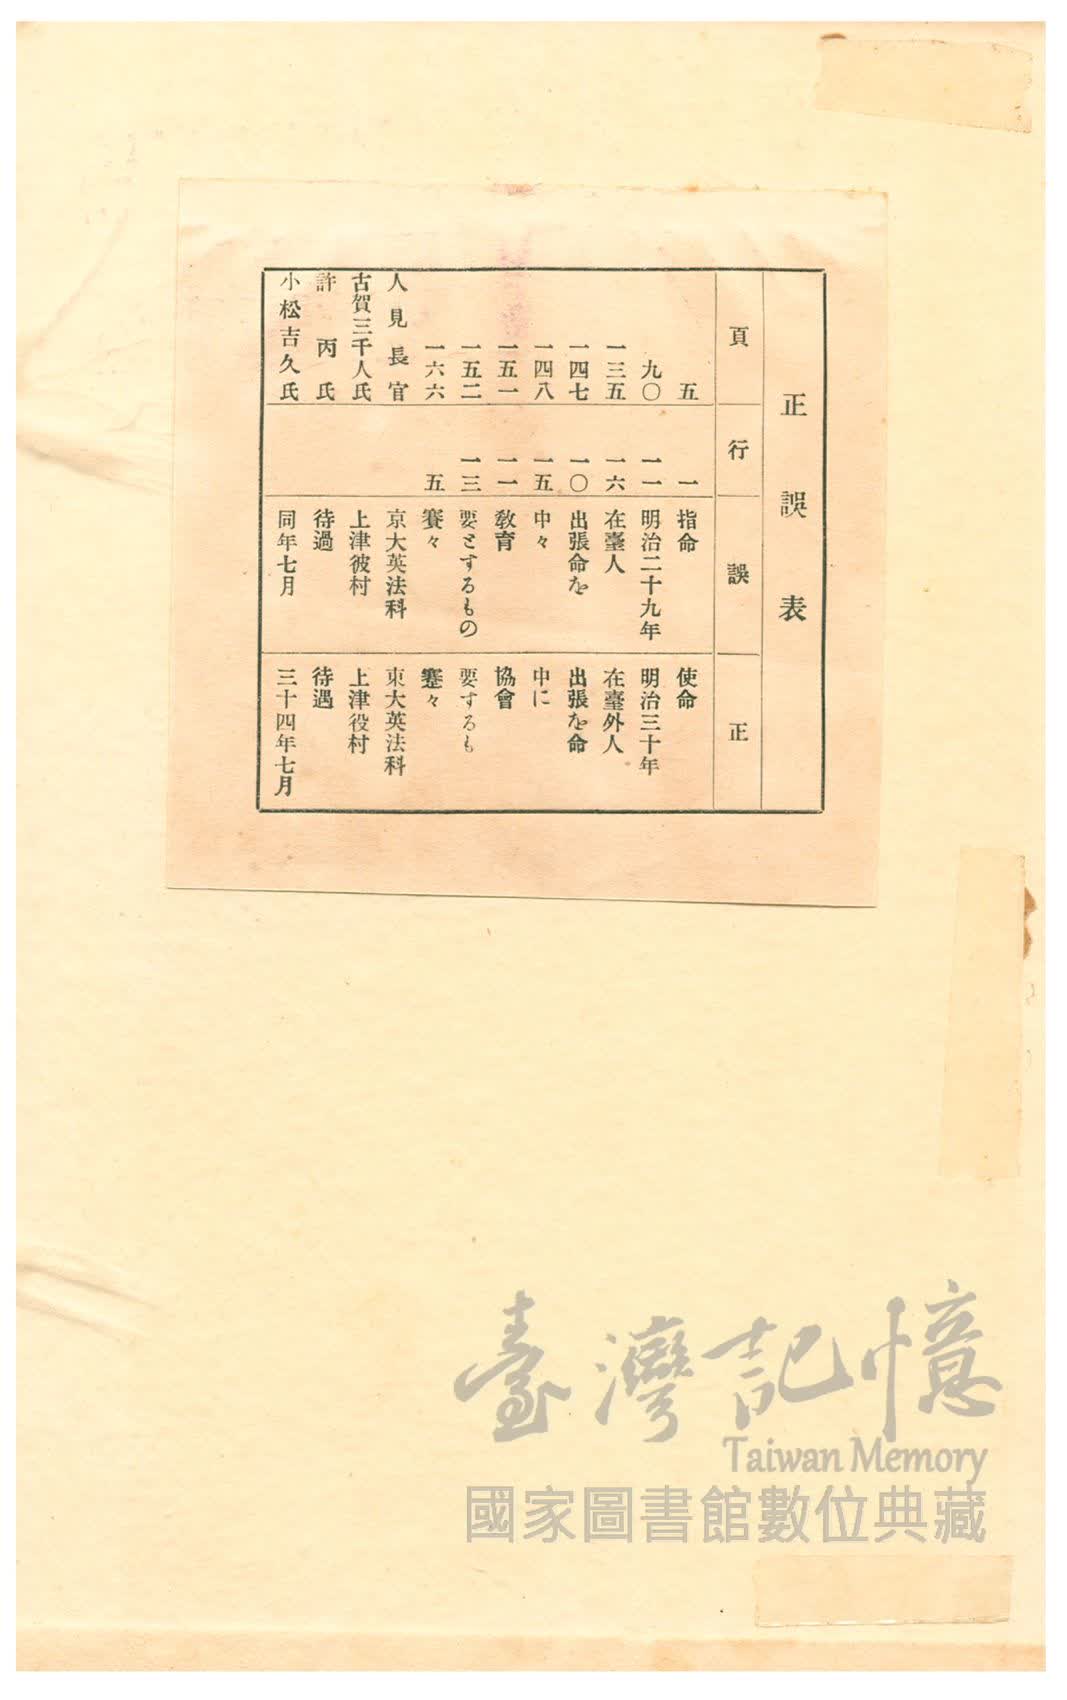 正誤表
頁 行 誤 正
五 一 指命 使命
九〇 一一 明治二十九年 明治三十年
一三五 一六 在臺人 在臺外人
一四七 一〇 出張命を 出張を命
一四八 一五 中々 中に
一五一 一一 敎育 協會
一五二 一三 要とするもの 要するも
一六六 五 賽々 蹇々
人見長官 京大英法科 東大英法科
古賀三千人氏 上津彼村 上津役村
許丙氏 待過 待遇
小松吉久氏 同年七月 三十四年七月
臺灣記憶
Taiwan Memory
國家圖書館數位典藏